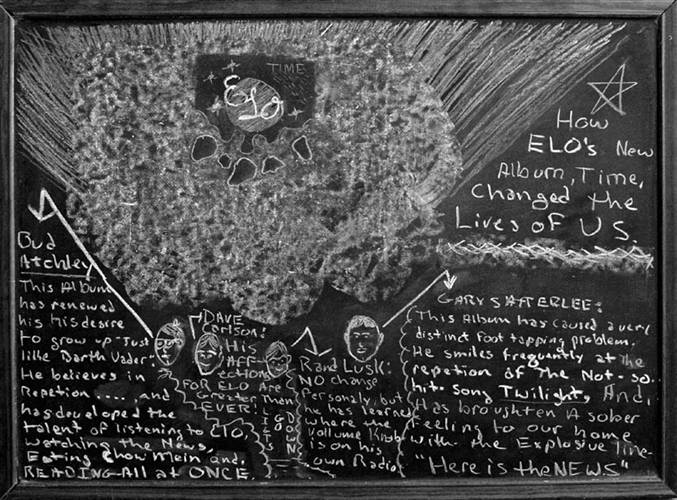 TIME
ELO
How
ELO's New
Album, Time,
Changed the
Lives of US.
Bud
Atchley
This Album
has renewed
his his desire
to grow up "Just
like Darth Vader".
He believes in
Repetion....., and
has developed the
talent of listening to ELO,
watching the News,
Eating Chow Mein and,
READING-All at ONCE.
DAVE
Carlson:
His
Aff-
ections
FOR ELO Are
Greater Than
EVER!
LIGHTS
DOWN
Rand Lusk:
NO change
Personaly, but
he has learned
where the
Volume Knob
is on his
own Radio.
GARY SATTERLEE:
This Album has caused a very
distinct foot tapping problem.
He smiles frequently at the
repetion of The Not-so-
hit-song Twilight, And,
Has broughten A sober
feeling to our home
with the Explosive Time-
"Here is the NEWS"